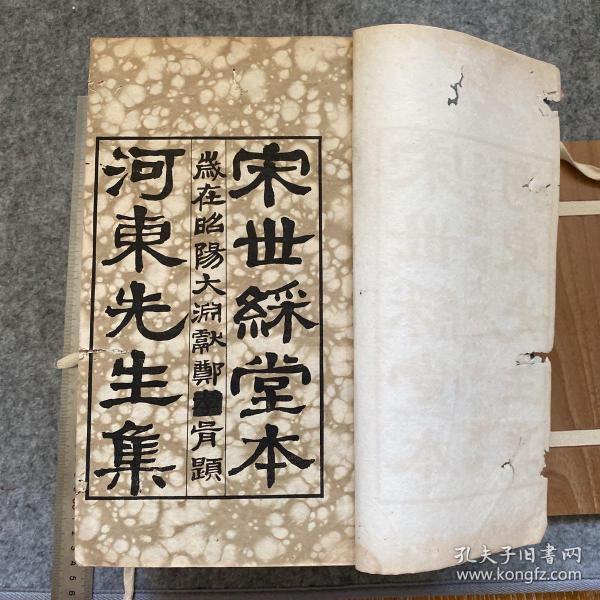 宋世綵堂本
歲在昭陽大淵獻鄭胥題
河東先生集
孔夫子旧書网
www.kongfz.com